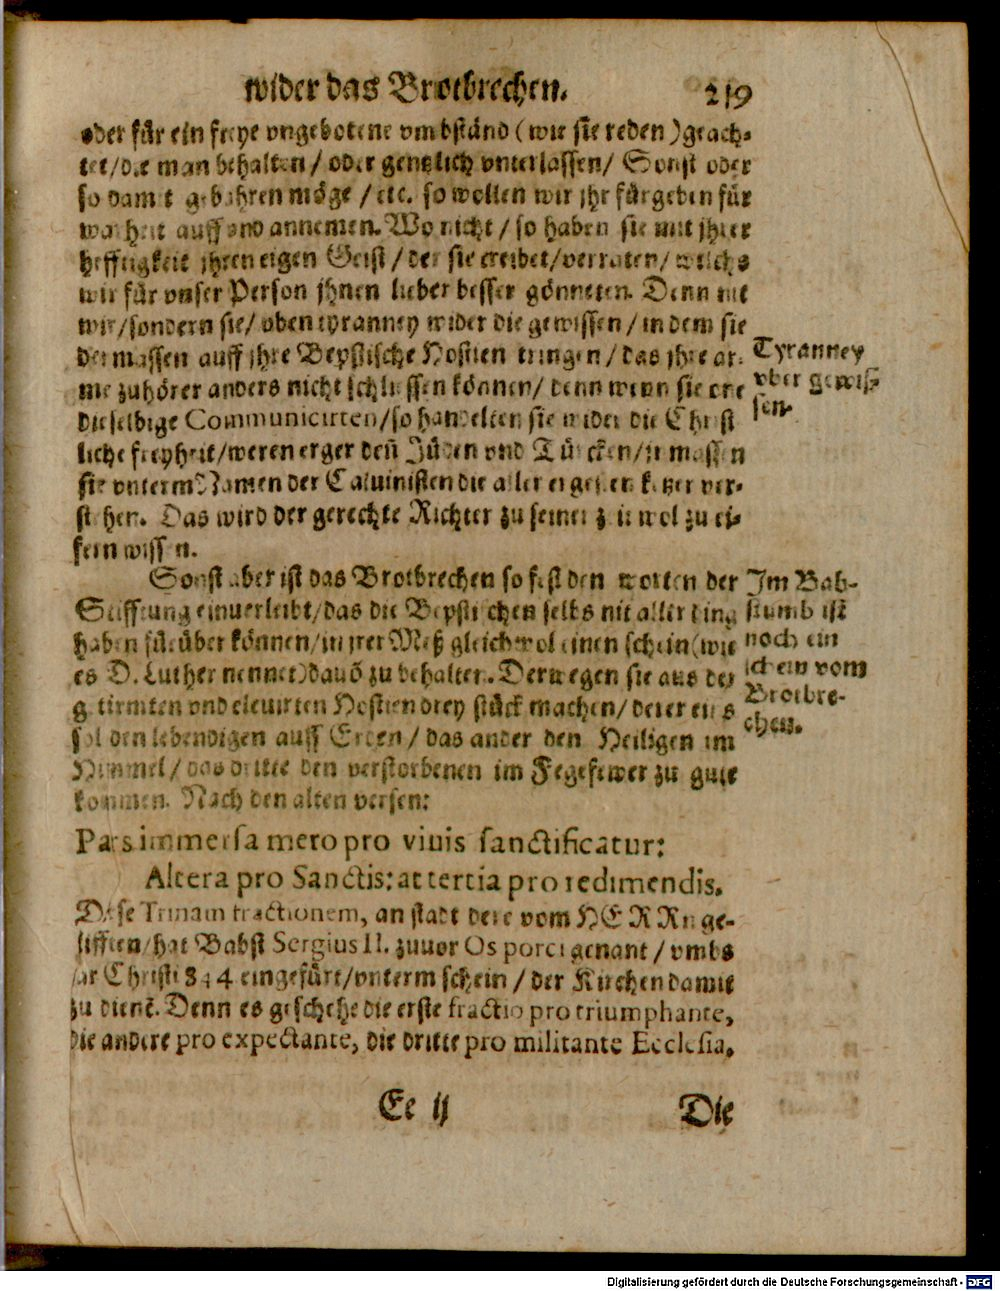 wider das Brotbrechen. 219
oder für ein freye vngebotene vmbständ (wie sie reden) geach-
tet/die man behalten/ oder gentzlich vnterlassen/ Sonst oder
so damit gebahren möge /etc. so wollen wir jhr fürgeben für
warheit auff vnd annemen. Wo nicht / so haben sie mit jhrer
hefftigkeit jhren eigen Geist / der sie treibet/verraten/ welchs
wir für vnser Person jhnen lieber besser gönneten. Denn nit
wir/sondern sie/ vben tyranney wider die gewissen / in dem sie
dermassen auff jhre Bepstische Hostien tringen / das jhre ar-
me zuhörer anders nicht schliessen können/ denn wenn sie one
dieselbige Communicirten/so handelten sie wider die Christ
liche freyheit/weren erger deñ Jüden vnd Türcken/ in massen
sie vnterm Namen der Caluinisten die aller ergesten ketzer ver-
stehen. Das wird der gerechte Richter zu seiner zeit wol zu ei-
fern wissen.
Tyranney
vber gewis-
sen.
Sonst aber ist das Brotbrechen so fest den worten der
Stifftung einuerleibt/das die Bepstischen selbs nit aller ding
haben fürüber können/in jrer Meß gleichwol einen schein (wie
es D. Luther nennet) dauõ zu behalten. Derwegen sie aus der
gefirmten vnd eleuirten Hostien drey stück machen/ derer eins
sol den lebendigen auff Erden / das ander den Heiligen im
Himmel / das dritte den verstorbenen im Fegefewer zu gute
kommen. Nach den alten versen:
Im Bab-
stumb ist
noch ein
schein vom
Brotbre-
chen.
Pars immersa mero pro viuis sanctificatur:
Altera pro Sanctis: at tertia pro redimendis.
Diese Trinam fractionem, an stadt dere vom HERRn ge-
stifften/hat Babst Sergius II. zuuor Os porci genant / vmbs
jar Christi 844 eingefürt/vnterm schein / der Kirchen damit
zu dienẽ. Denn es geschehe die erste fractio pro triumphante,
die andere pro expectante, die dritte pro militante Ecclesia.
Ee ij Die
Digitalisierung gefördert durch die Deutsche Forschungsgemeinschaft - DFG